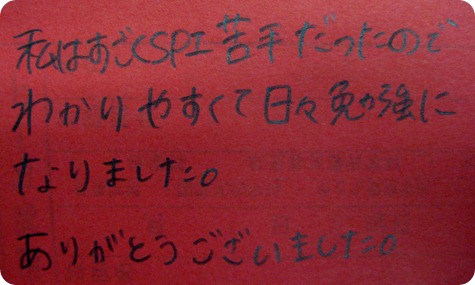 私はすごくSPI苦手だったので
わかりやすくて日々勉強に
なりました。
ありがとうございました。